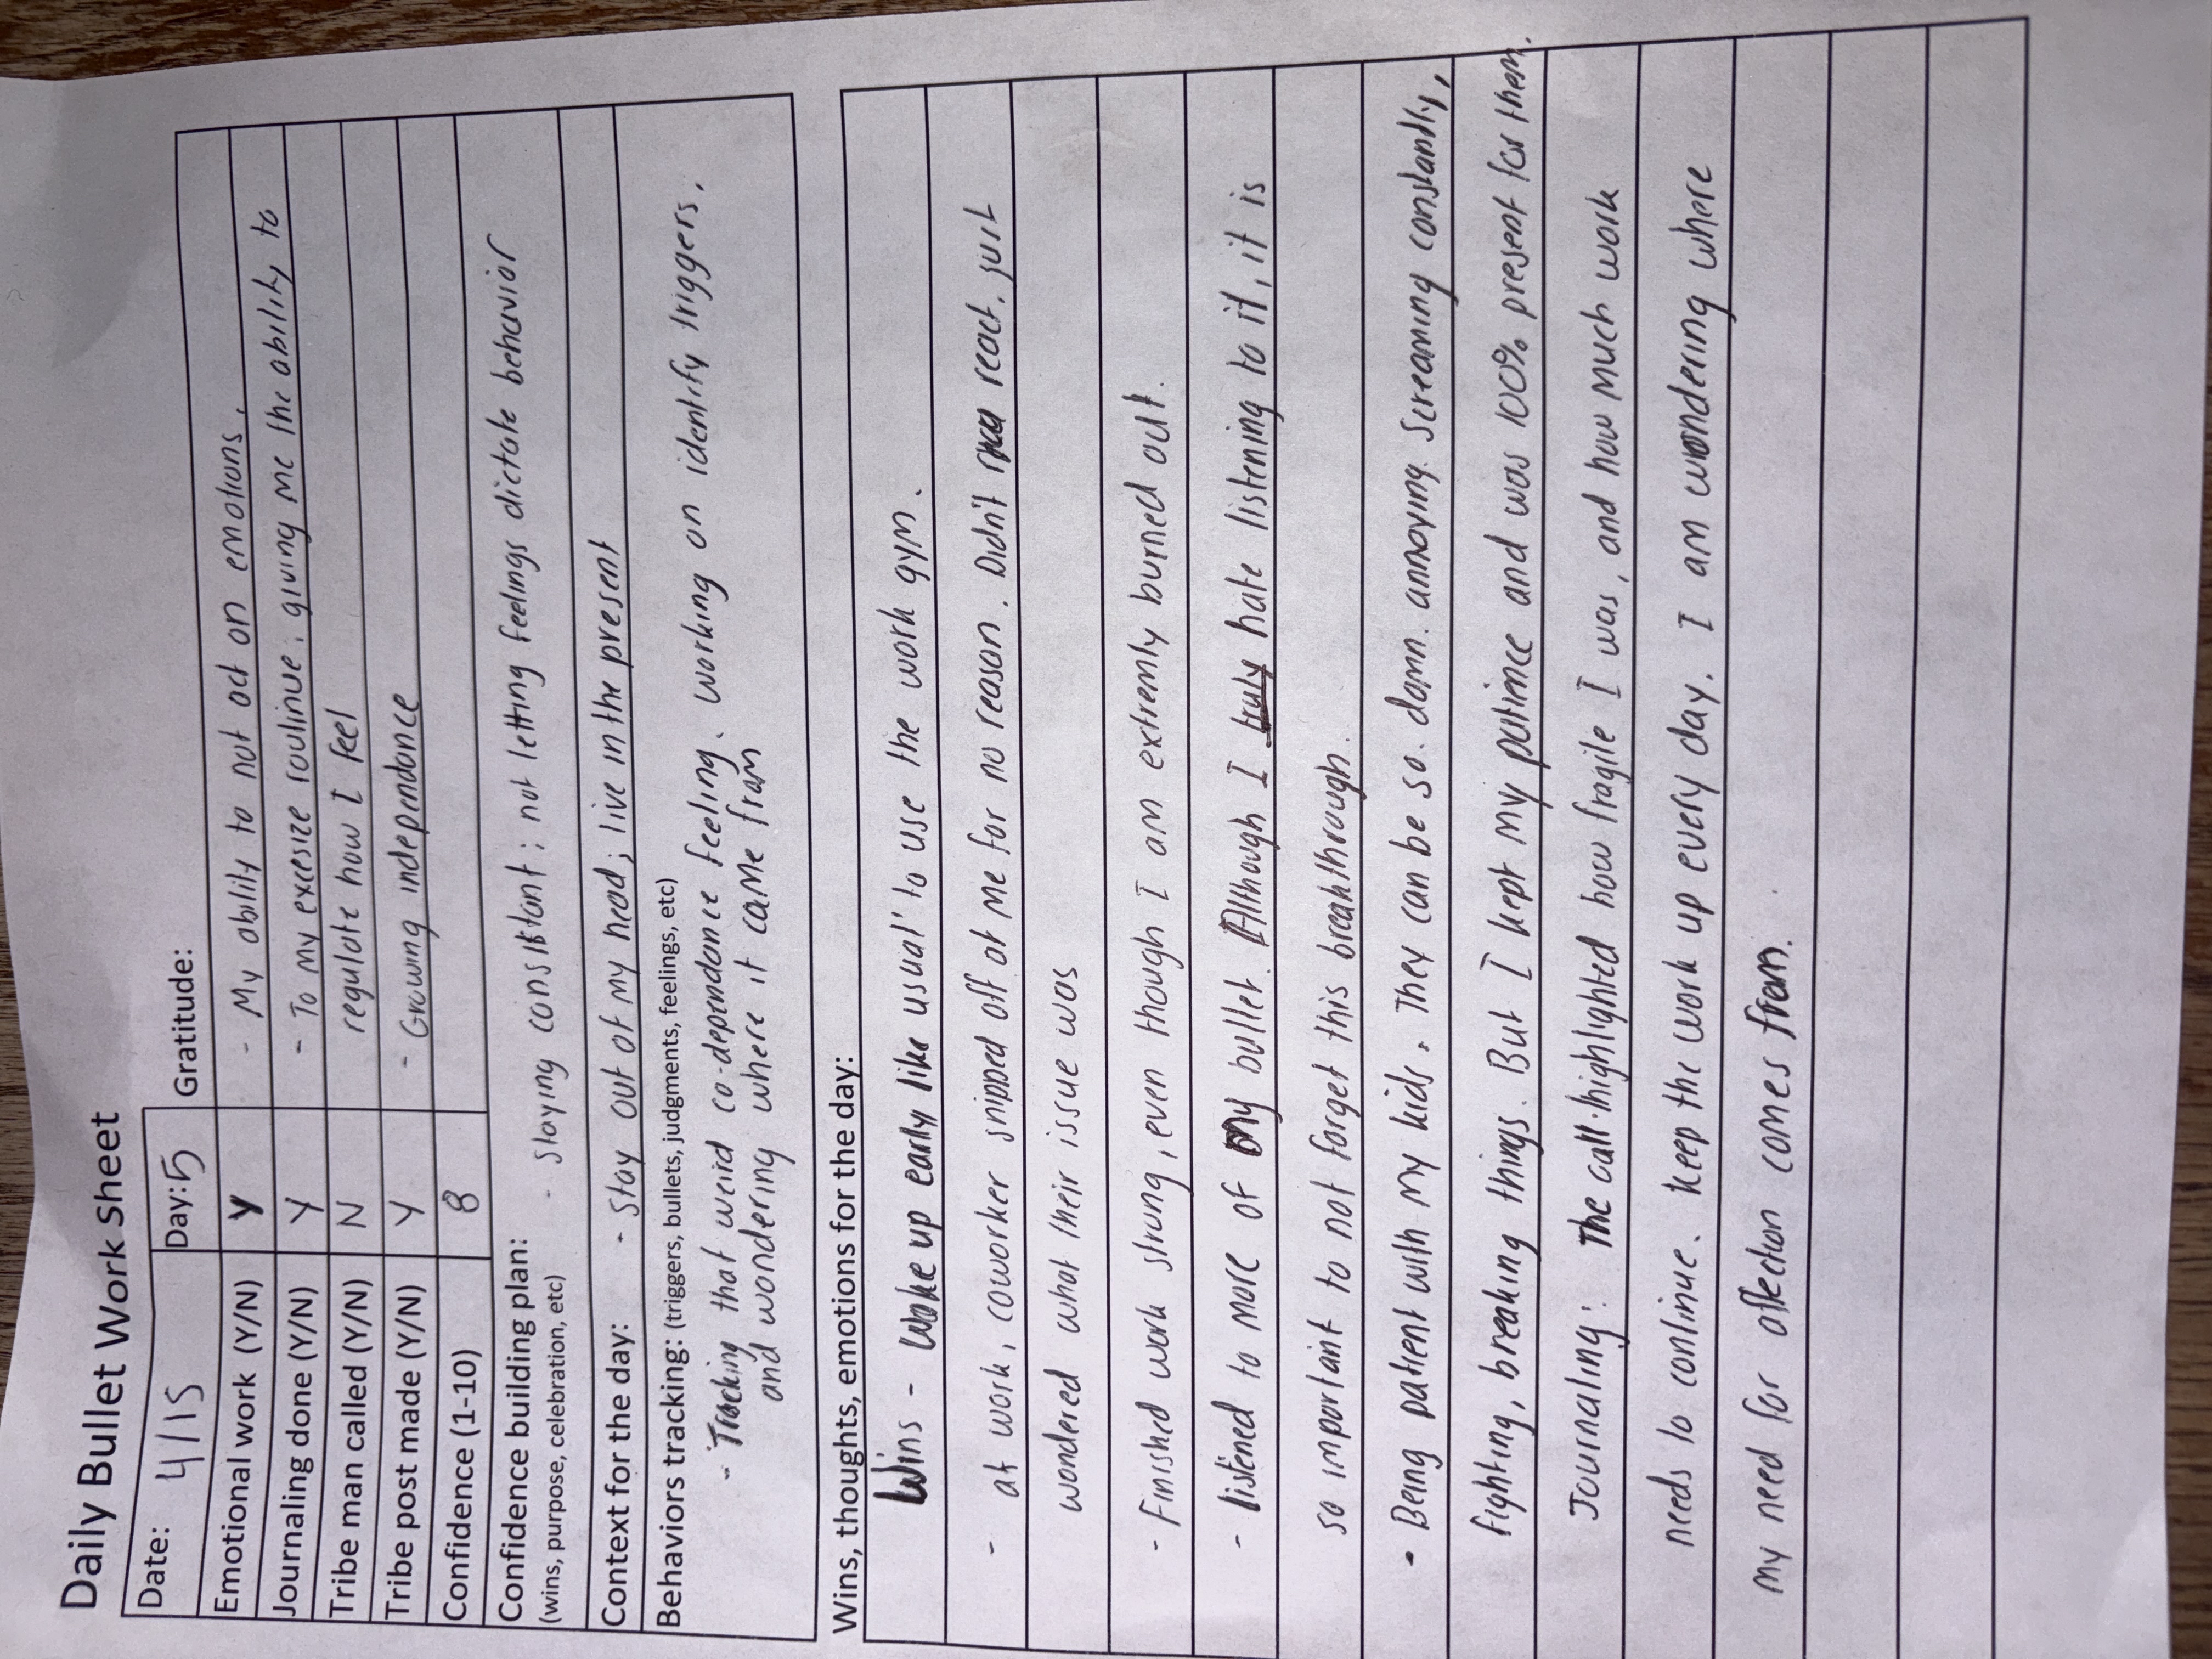 Daily Bullet Work sheet
Date: 4/15 Day:5 Gratitude:
Emotional work (Y/N) Y - My ability to not act on emotions.
Journaling done (Y/N) Y - To my excersize roulinue; giving me the ability to
Tribe man called (Y/N) N regulate how I feel
Tribe post made (Y/N) Y - Growing independance
Confidence (1-10) 8
Confidence building plan: - staying consistant; not letting feelings dictate behavior
(wins, purpose, celebration, etc)
Context for the day: - stay out of my head; live in the present
Behaviors tracking: (triggers, bullets, judgments, feelings, etc)
- Tracking that weird co-dependance feeling. working on identify triggers.
and wondering where it came from
Wins, thoughts, emotions for the day:
Wins - woke up early like usual to use the work gym.
- at work, coworker snipped off at me for no reason. Didn't react, just
wondered what their issue was
- Finished work strong, even though I am extremly burned out.
- listened to more of my bullet. Although I truly hate listening to it, it is
so important to not forget this breakthrough.
• Being patient with my kids. They can be so. damn. annoying. Screaming constantly,
fighting, breaking things. But I kept my patience and was 100% present for them.
Journaling: The call highlighted how fragile I was, and how much work
needs to continue. keep the work up every day. I am wondering where
my need for affection comes from.